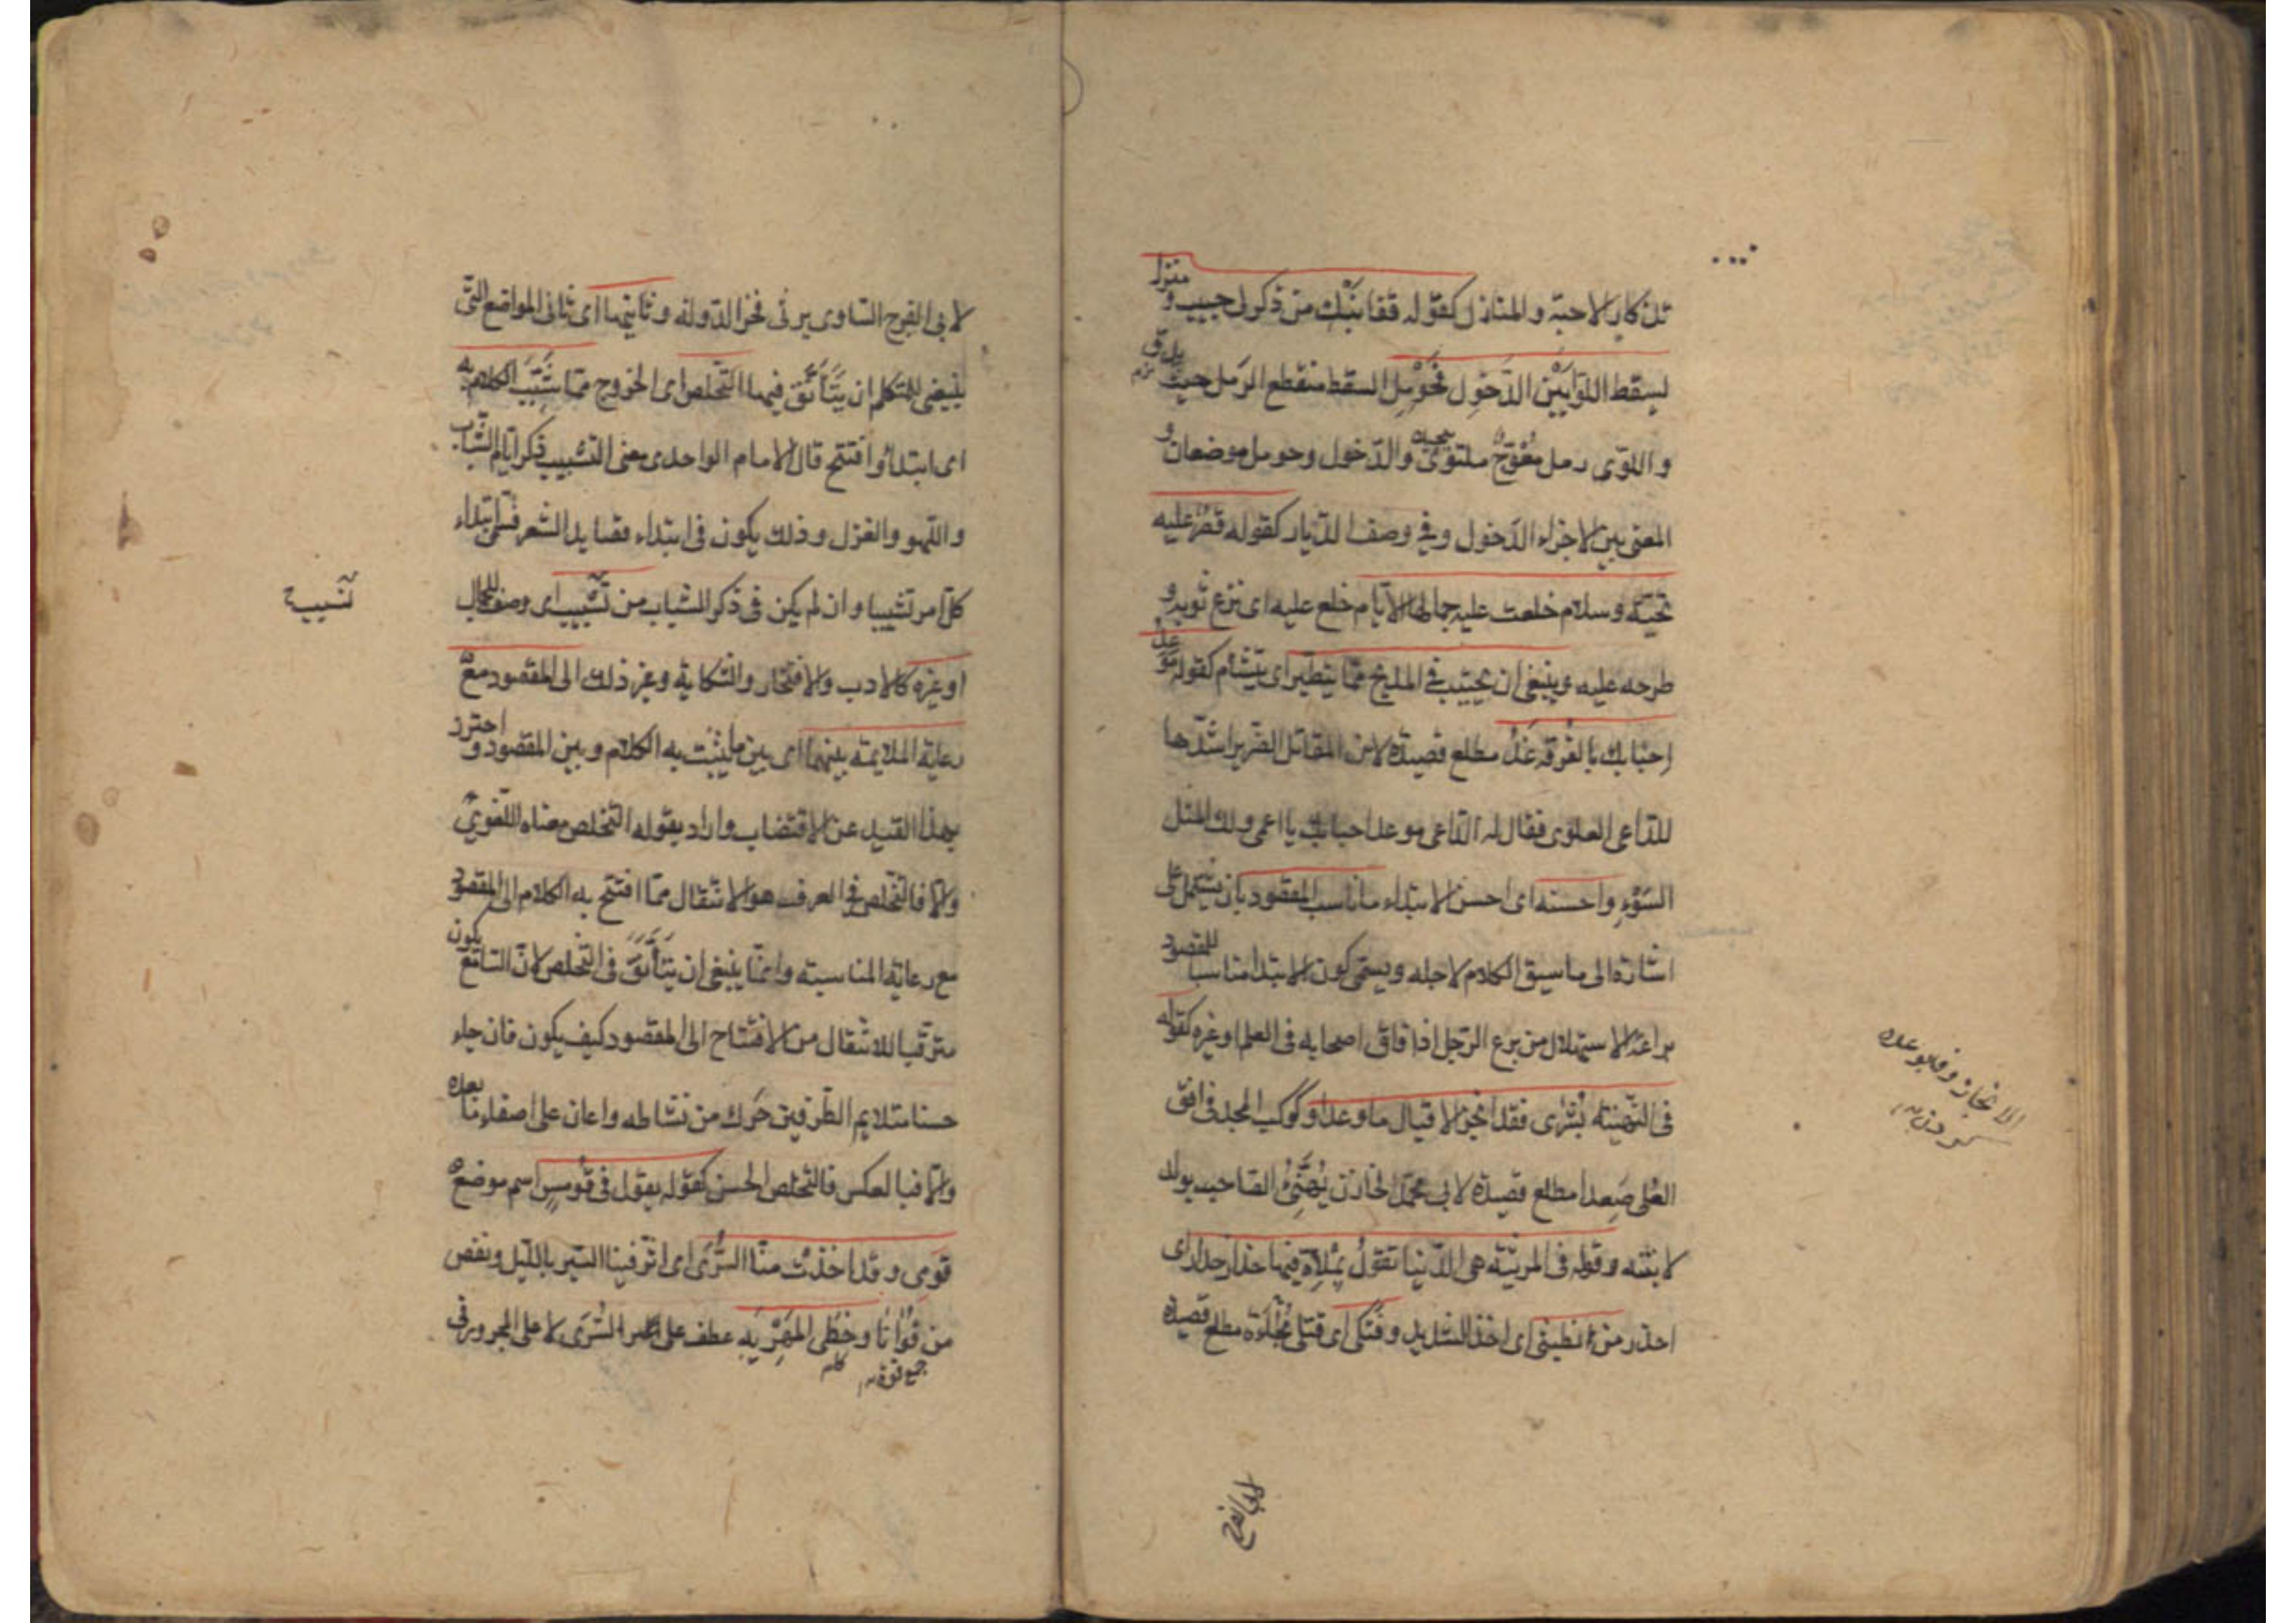 تذكار الاحبة والمنازل كقوله قفا نبك من ذكرى حبيب ومنزل
بسقط اللوى بين الدخول فحومل السقط منقطع الرمل حيث يدق
واللوى رمل معوج ملتوى والدخول وحومل موضعان و
المعنى بين اجزاء الدخول وفي وصف الديار كقوله قصر عليه
تحية وسلام خلعت عليه جمالها الايام خلع عليه اى نزع ثوبه و
طرحه عليه وينبغى ان يجتنب في المديح مما يتطير اى يتشأم كقوله موعد
احبابك بالفرقة غد مطلع قصيدة لابن المقاتل الضرير انشدها
للداعى العلوى فقال له الداعى موعد احبابك يا اعمى ولك المثل
السوء واحسنه اى احسن الابتداء ما ناسب المقصود بان يشتمل على
اشارة الى ما سيق الكلام لاجله ويسمى كون الابتدا مناسبا للمقصود
براعة الاستهلال من برع الرجل اذا فاق اصحابه فى العلم او غيره كقوله
فى التهنية بشرى فقد انجز الاقبال ما وعدا وكوكب المجد فى افق
العلى صعدا مطلع قصيدة لابى محمد الخازن يهنئ الصاحب بولد
لابنته وقوله فى المرثية هى الدنيا تقول بملاء فيها حذار حذار اى
احذر من بطشى اى اخذ الشديد وفتكى اى قتلى فجاءة مطلع قصيدة
الانجاز وفا بوعده
كردن
لابى الفرج
لابى الفرج الساوى يرثى فخر الدولة وثانيها اى ثانى المواضع التى
ينبغى للمتكلم ان يتأنق فيها التخلص اى الخروج مما شبب الكلام به
اى ابتدأ وافتتح قال الامام الواحدى معنى التشبيب ذكر ايام الشباب
واللهو والغزل وذلك يكون فى ابتداء قصايد الشعر فسمى ابتداء
كل امر تشبيبا وان لم يكن فى ذكر الشباب من تشبيب اى وصف للجمال
او غيره كالادب والافتخار والشكاية وغير ذلك الى المقصود مع
رعاية الملايمة بينهما اى بين ما يشبب به الكلام وبين المقصود واحترز
بهذا القيد عن الاقتضاب واراد بقوله التخلص معناه اللغوى
والا فالتخلص فى العرف هو الانتقال مما افتتح به الكلام الى المقصود
مع رعاية المناسبة وانما ينبغى ان يتأنق فى التخلص لان السامع يكون
مترقبا للانتقال من الافتتاح الى المقصود كيف يكون فان جاء
حسنا متلايم الطرفين حرك من نشاطه واعان على اصغاء ما بعده
والا فبالعكس فالتخلص الحسن كقوله يقول فى قومس اسم موضع
قومى وقد اخذت منا السرى اى اثر فينا السير بالليل ونقص
من قوانا وخطى المهرية عطف على السرى لا على المجرور فى
جمع قوة
نسيب